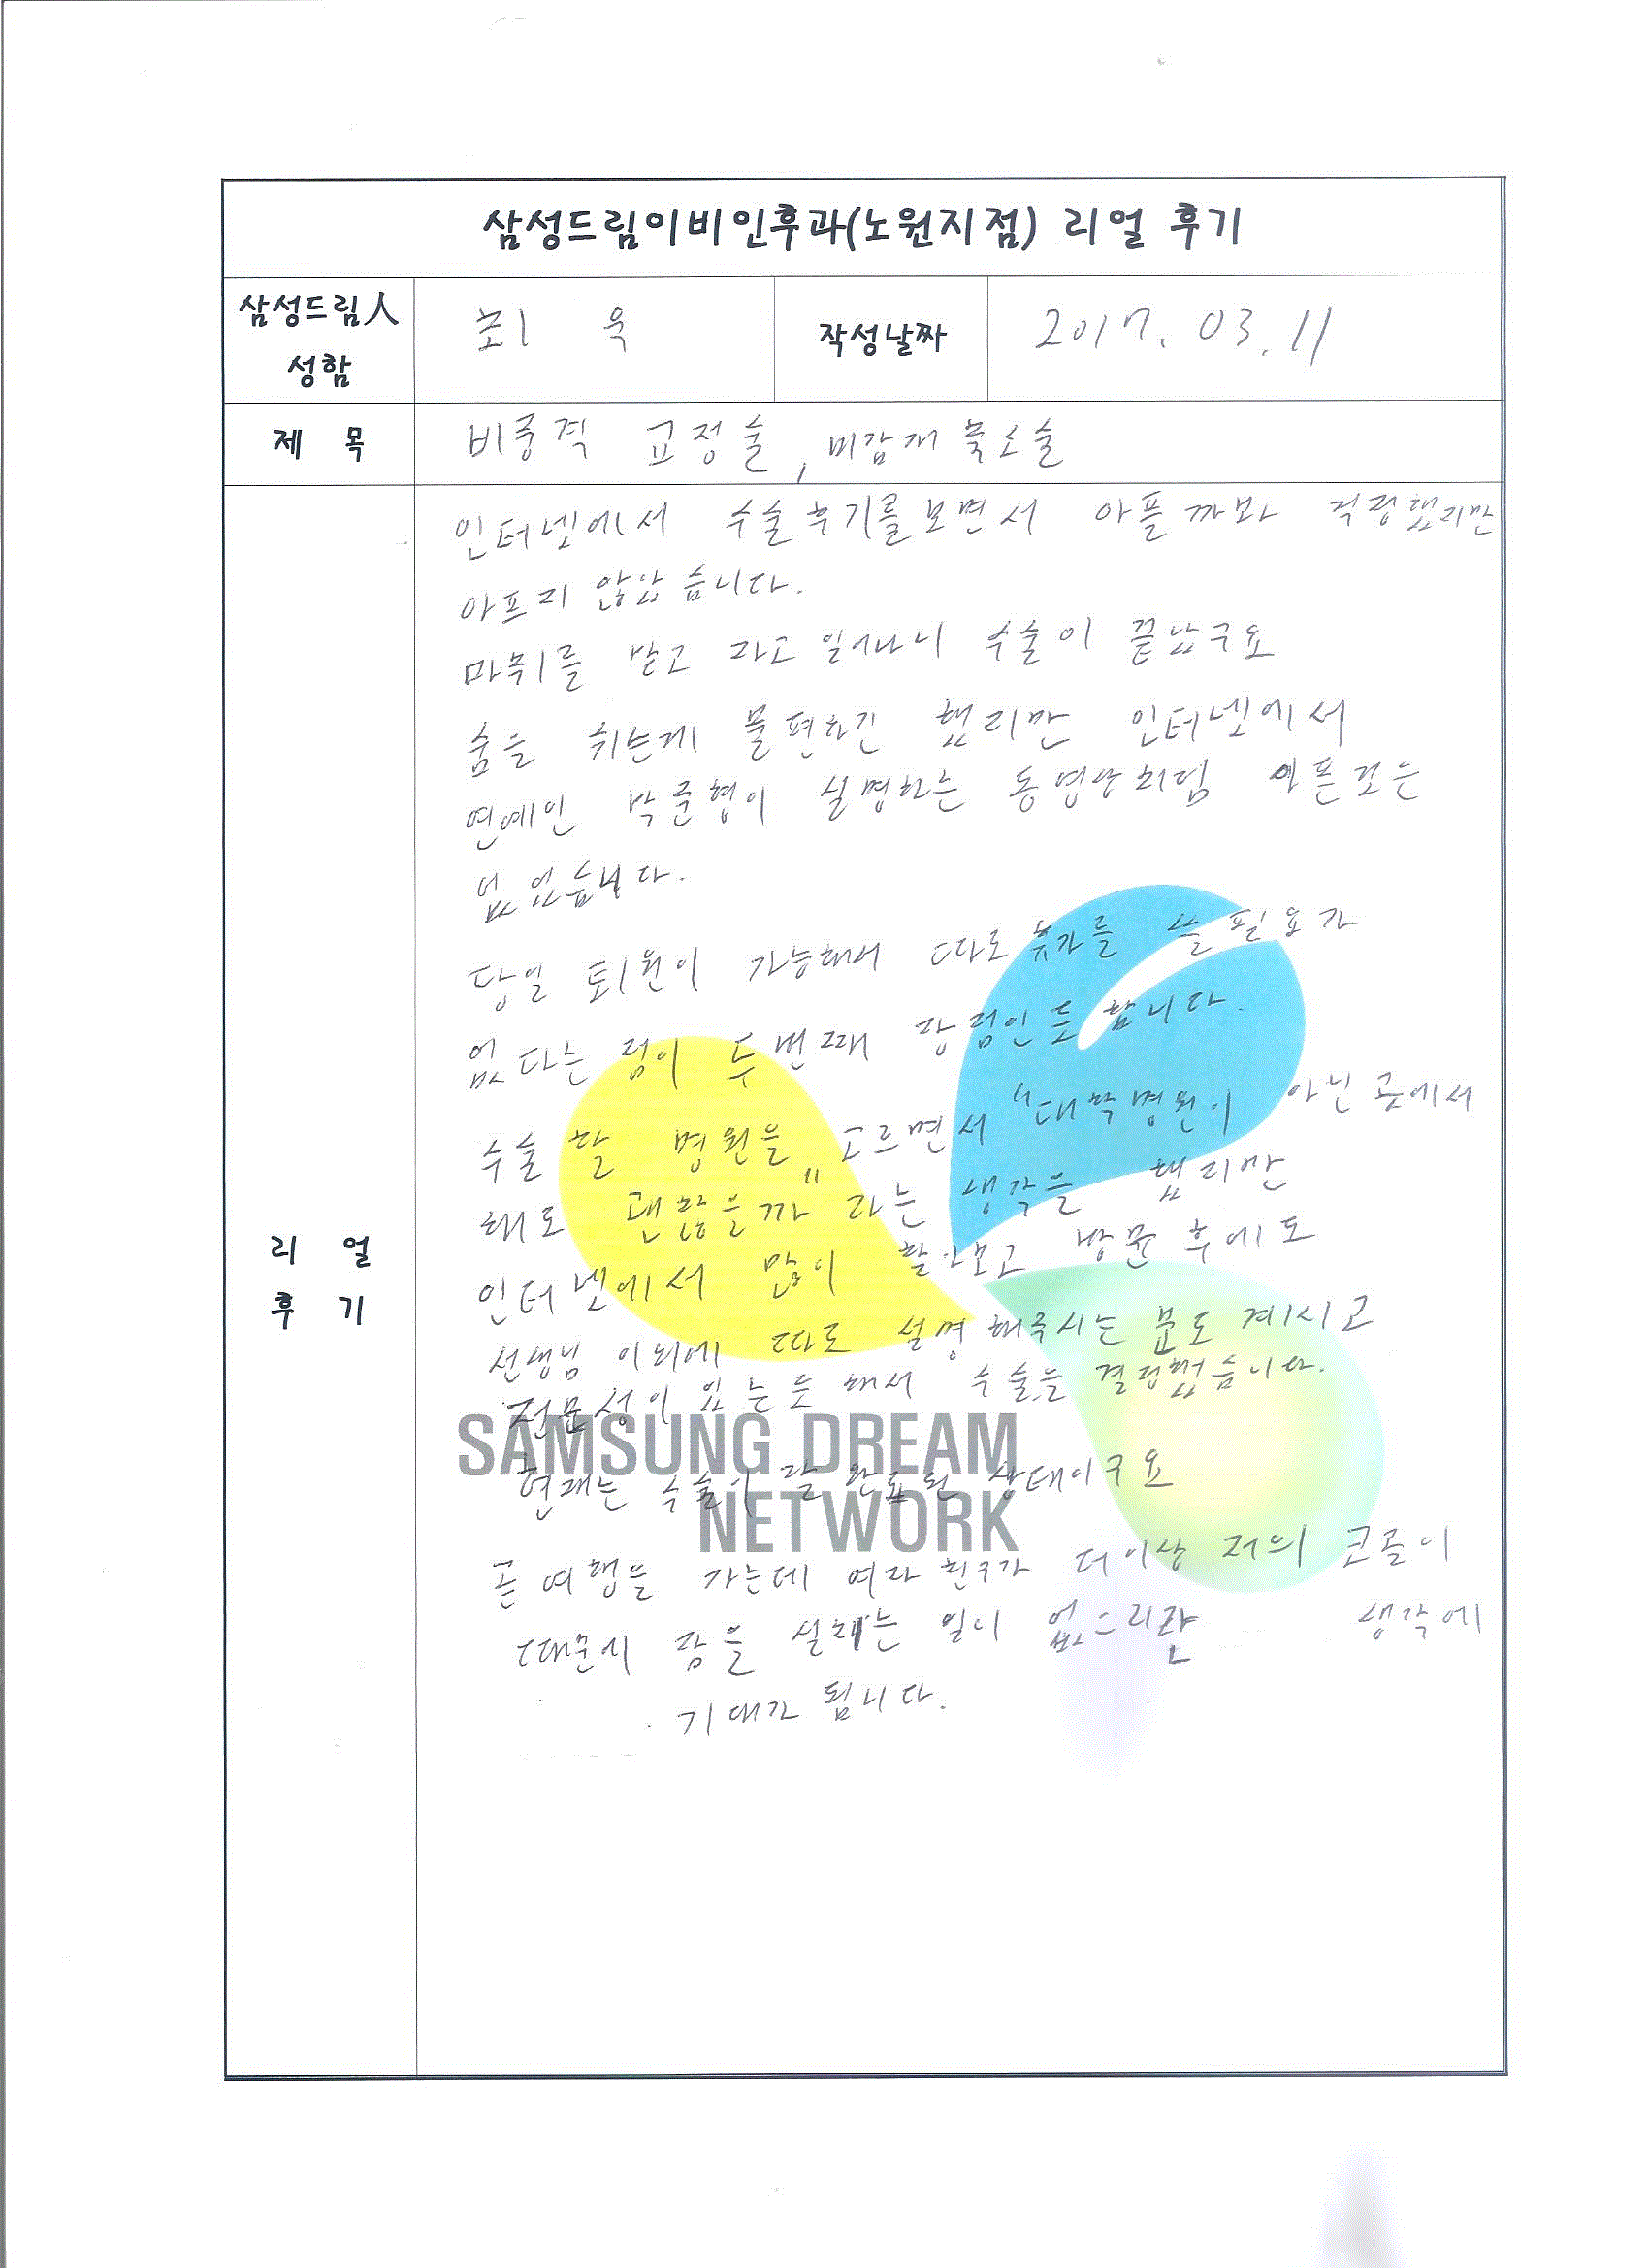 삼성드림이비인후과(노원지점) 리얼 후기
삼성드림人 성함
최 욱
작성날짜
2017. 03. 11
제 목
비중격 교정술, 비갑개 축소술
리 얼 후 기
인터넷에서 수술후기를보면서 아플까봐 걱정했지만
아프지 않았습니다.
마취를 받고 자고 일어나니 수술이 끝났구요
숨을 쉬는게 불편하긴 했지만 인터넷에서
연예인 박준형이 설명하는 동영상처럼 아픈것은
없었습니다.
당일 퇴원이 가능해서 따로 휴가를 쓸필요가
없다는 점이 두번째 장점인듯합니다.
수술할 병원을 고르면서 "대학병원이 아닌곳에서
해도 괜찮을까" 라는 생각을 했지만
인터넷에서 많이 찾아보고 방문 후에도
선생님 이외에 따로 설명해주시는 분도 계시고
전문성이 있는듯 해서 수술을 결정했습니다.
현재는 수술이 잘 완료된 상태이구요
곧 여행을 가는데 여자친구가 더이상 저의 코골이
때문에 잠을 설치는 일이 없으리란 생각에
기대가 됩니다.
SAMSUNG DREAM
NETWORK